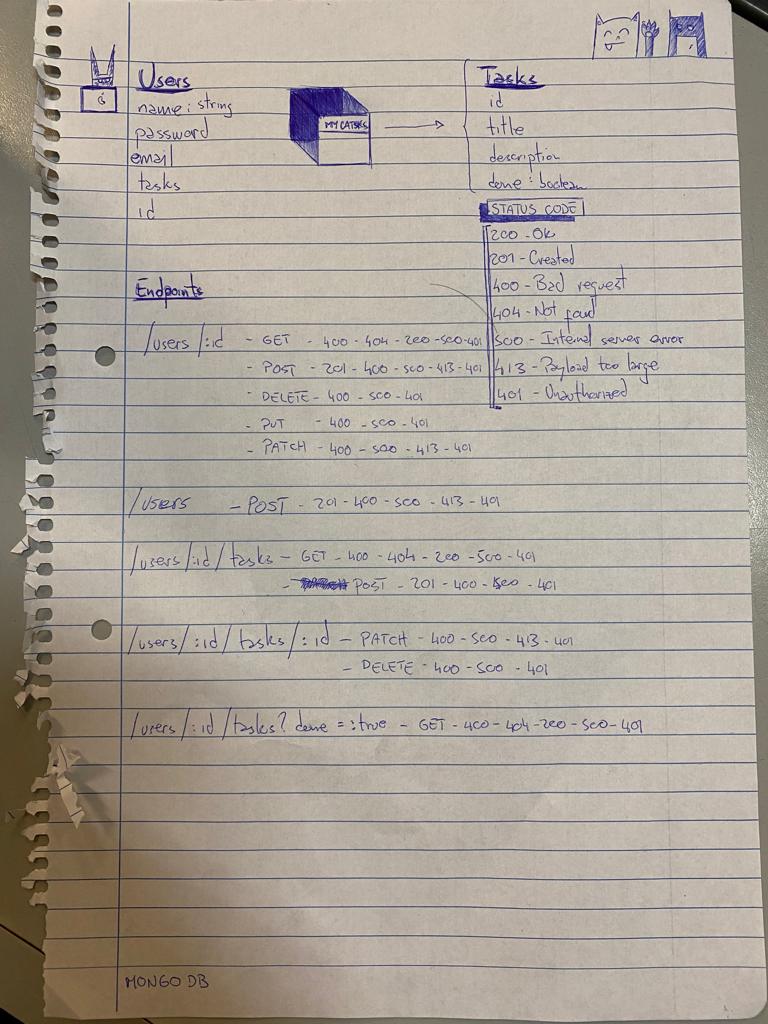 Users
name : string
password
email
tasks
id
MY CATSKS
Tasks
id
title
description
done : boolean
STATUS CODE
200 - Ok
201 - Created
400 - Bad request
404 - Not found
500 - Internal server error
413 - Payload too large
401 - Unauthorized
Endpoints
/users/:id - GET - 400 - 404 - 200 - 500 - 401
- POST - 201 - 400 - 500 - 413 - 401
- DELETE - 400 - 500 - 401
- PUT - 400 - 500 - 401
- PATCH - 400 - 500 - 413 - 401
/users - POST - 201 - 400 - 500 - 413 - 401
/users/:id/tasks - GET - 400 - 404 - 200 - 500 - 401
- POST - 201 - 400 - 500 - 401
/users/:id/tasks/:id - PATCH - 400 - 500 - 413 - 401
- DELETE - 400 - 500 - 401
/users/:id/tasks? done = :true - GET - 400 - 404 - 200 - 500 - 401
MONGO DB